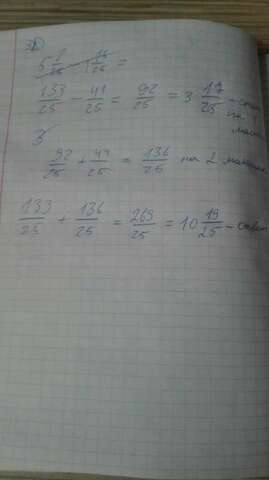 5 8/25 1 16/25 =
133/25 - 41/25 = 92/25 = 3 17/25 -
на 1
3
92/25 + 44/25 = 136/25 на 2
133/25 + 136/25 = 269/25 = 10 19/25 - ответ